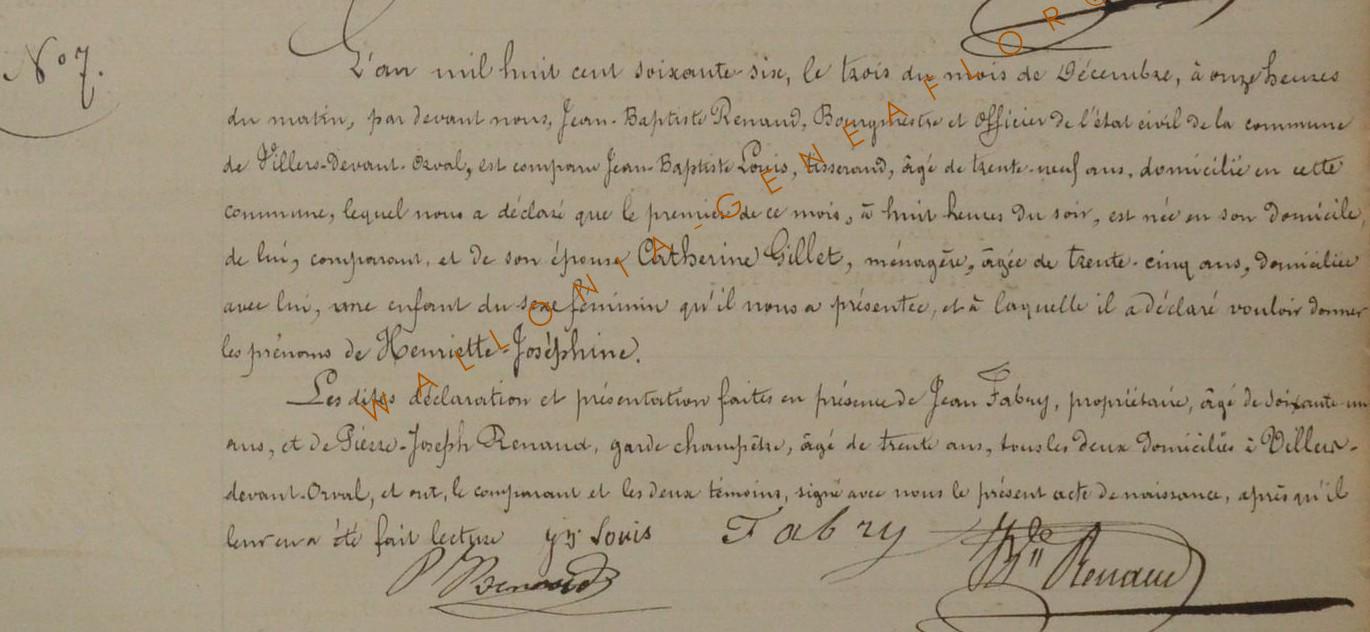 N° 7.
L'an mil huit cent soixante-six, le trois du mois de Décembre, à onze heures
du matin, par devant nous, Jean-Baptiste Renaud, Bourgmestre et officier de l'état civil de la commune
de Villers-devant-Orval, est comparu Jean-Baptiste Louis, tisserand, âgé de trente-neuf ans, domicilié en cette
commune, lequel nous a déclaré que le premier de ce mois, à huit heures du soir, est née en son domicile,
de lui, comparant, et de son épouse Catherine Gillet, ménagère, âgée de trente-cinq ans, domiciliée
avec lui, une enfant du sexe féminin qu'il nous a présentée, et à laquelle il a déclaré vouloir donner
les prénoms de Henriette-Joséphine.
Les dites déclaration et présentation faites en présence de Jean Fabry, propriétaire, âgé de soixante-un
ans, et de Pierre-Joseph Renaud, garde champêtre, âgé de trente ans, tous les deux domiciliés à Villers-
devant-Orval, et ont, le comparant et les deux témoins, signé avec nous le présent acte de naissance, après qu'il
leur en a été fait lecture Louis Fabry
P Renaud Renaud
WALLONIA-GENEAFI.ORG